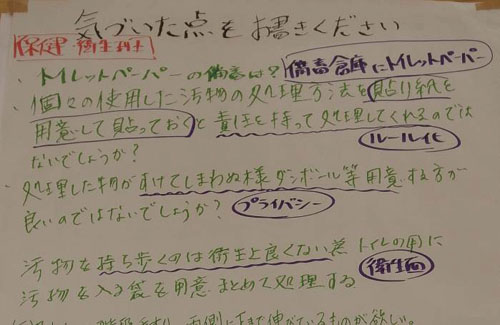 気づいた点をお書きください
保健・衛生班
・トイレットペーパーの備蓄は? 備蓄倉庫にトイレットペーパー
・個々の使用した汚物の処理方法を貼り紙を
用意して貼っておくと責任を持って処理してくれるのでは
ないでしょうか? ルール化
・処理した物がすけてしまわぬ様ダンボール等用意する方が
良いのではないでしょうか? プライバシー
汚物を持ち歩くのは衛生上良くない為トイレの用に
汚物を入る袋を用意まとめて処理する 衛生面
両側にまで伸びているものが欲しい。